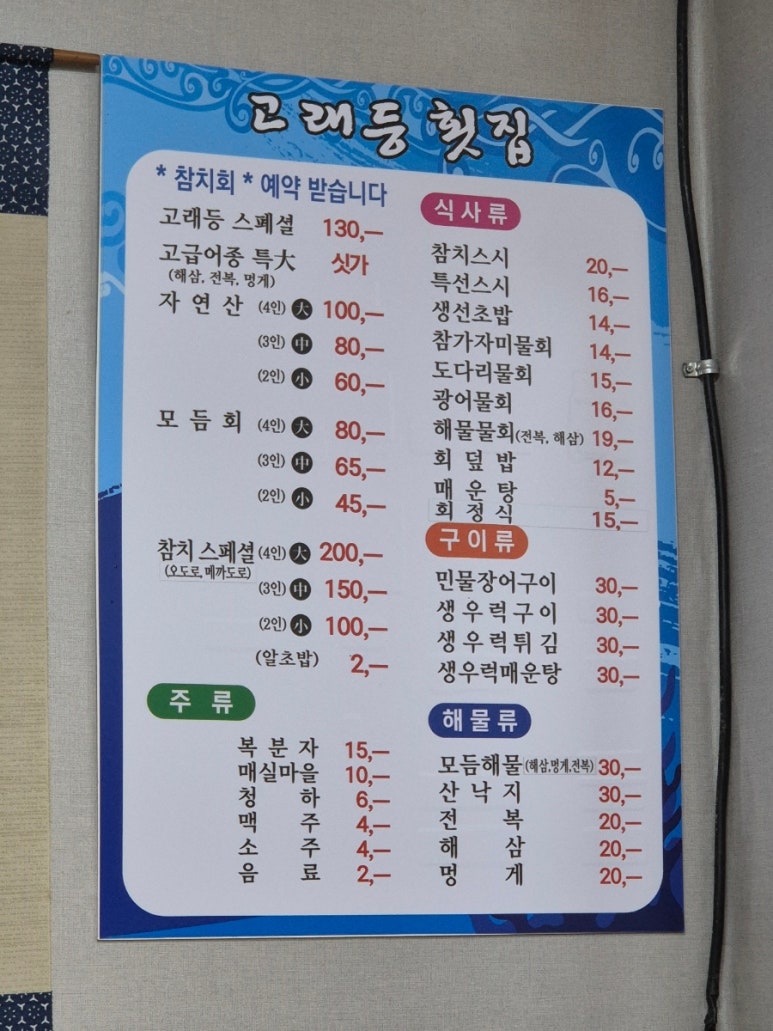 고래등 횟집
* 참치회 * 예약 받습니다
고래등 스폐셜 130,—
고급어종 특大 싯가
(해삼, 전복, 멍게)
자연산 (4인) 大 100,—
(3인) 中 80,—
(2인) 小 60,—
모듬회 (4인) 大 80,—
(3인) 中 65,—
(2인) 小 45,—
참치 스페셜 (4인) 大 200,—
(오도로, 메까도로)
(3인) 中 150,—
(2인) 小 100,—
(알초밥) 2,—
주류
복분자 15,—
매실마을 10,—
청하 6,—
맥주 4,—
소주 4,—
음료 2,—
식사류
참치스시 20,—
특선스시 16,—
생선초밥 14,—
참가자미물회 14,—
도다리물회 15,—
광어물회 16,—
해물물회(전복, 해삼) 19,—
회덮밥 12,—
매운탕 5,—
회정식 15,—
구이류
민물장어구이 30,—
생우럭구이 30,—
생우럭튀김 30,—
생우럭매운탕 30,—
해물류
모듬해물(해삼,멍게,전복) 30,—
산낙지 30,—
전복 20,—
해삼 20,—
멍게 20,—